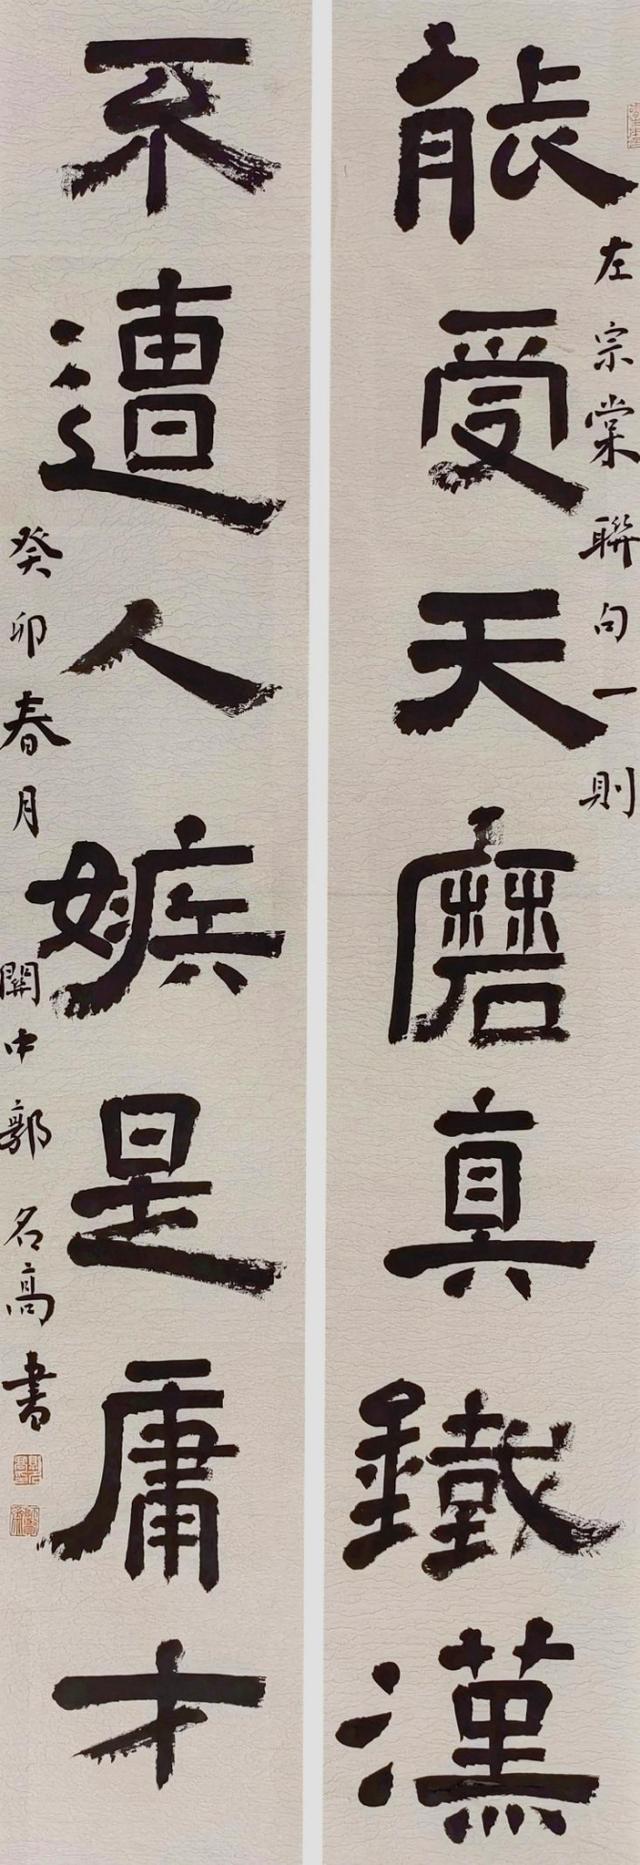 能受天磨真鐵漢
左宗棠聯句一則
不遭人嫉是庸才
癸卯春月關中郭名高書